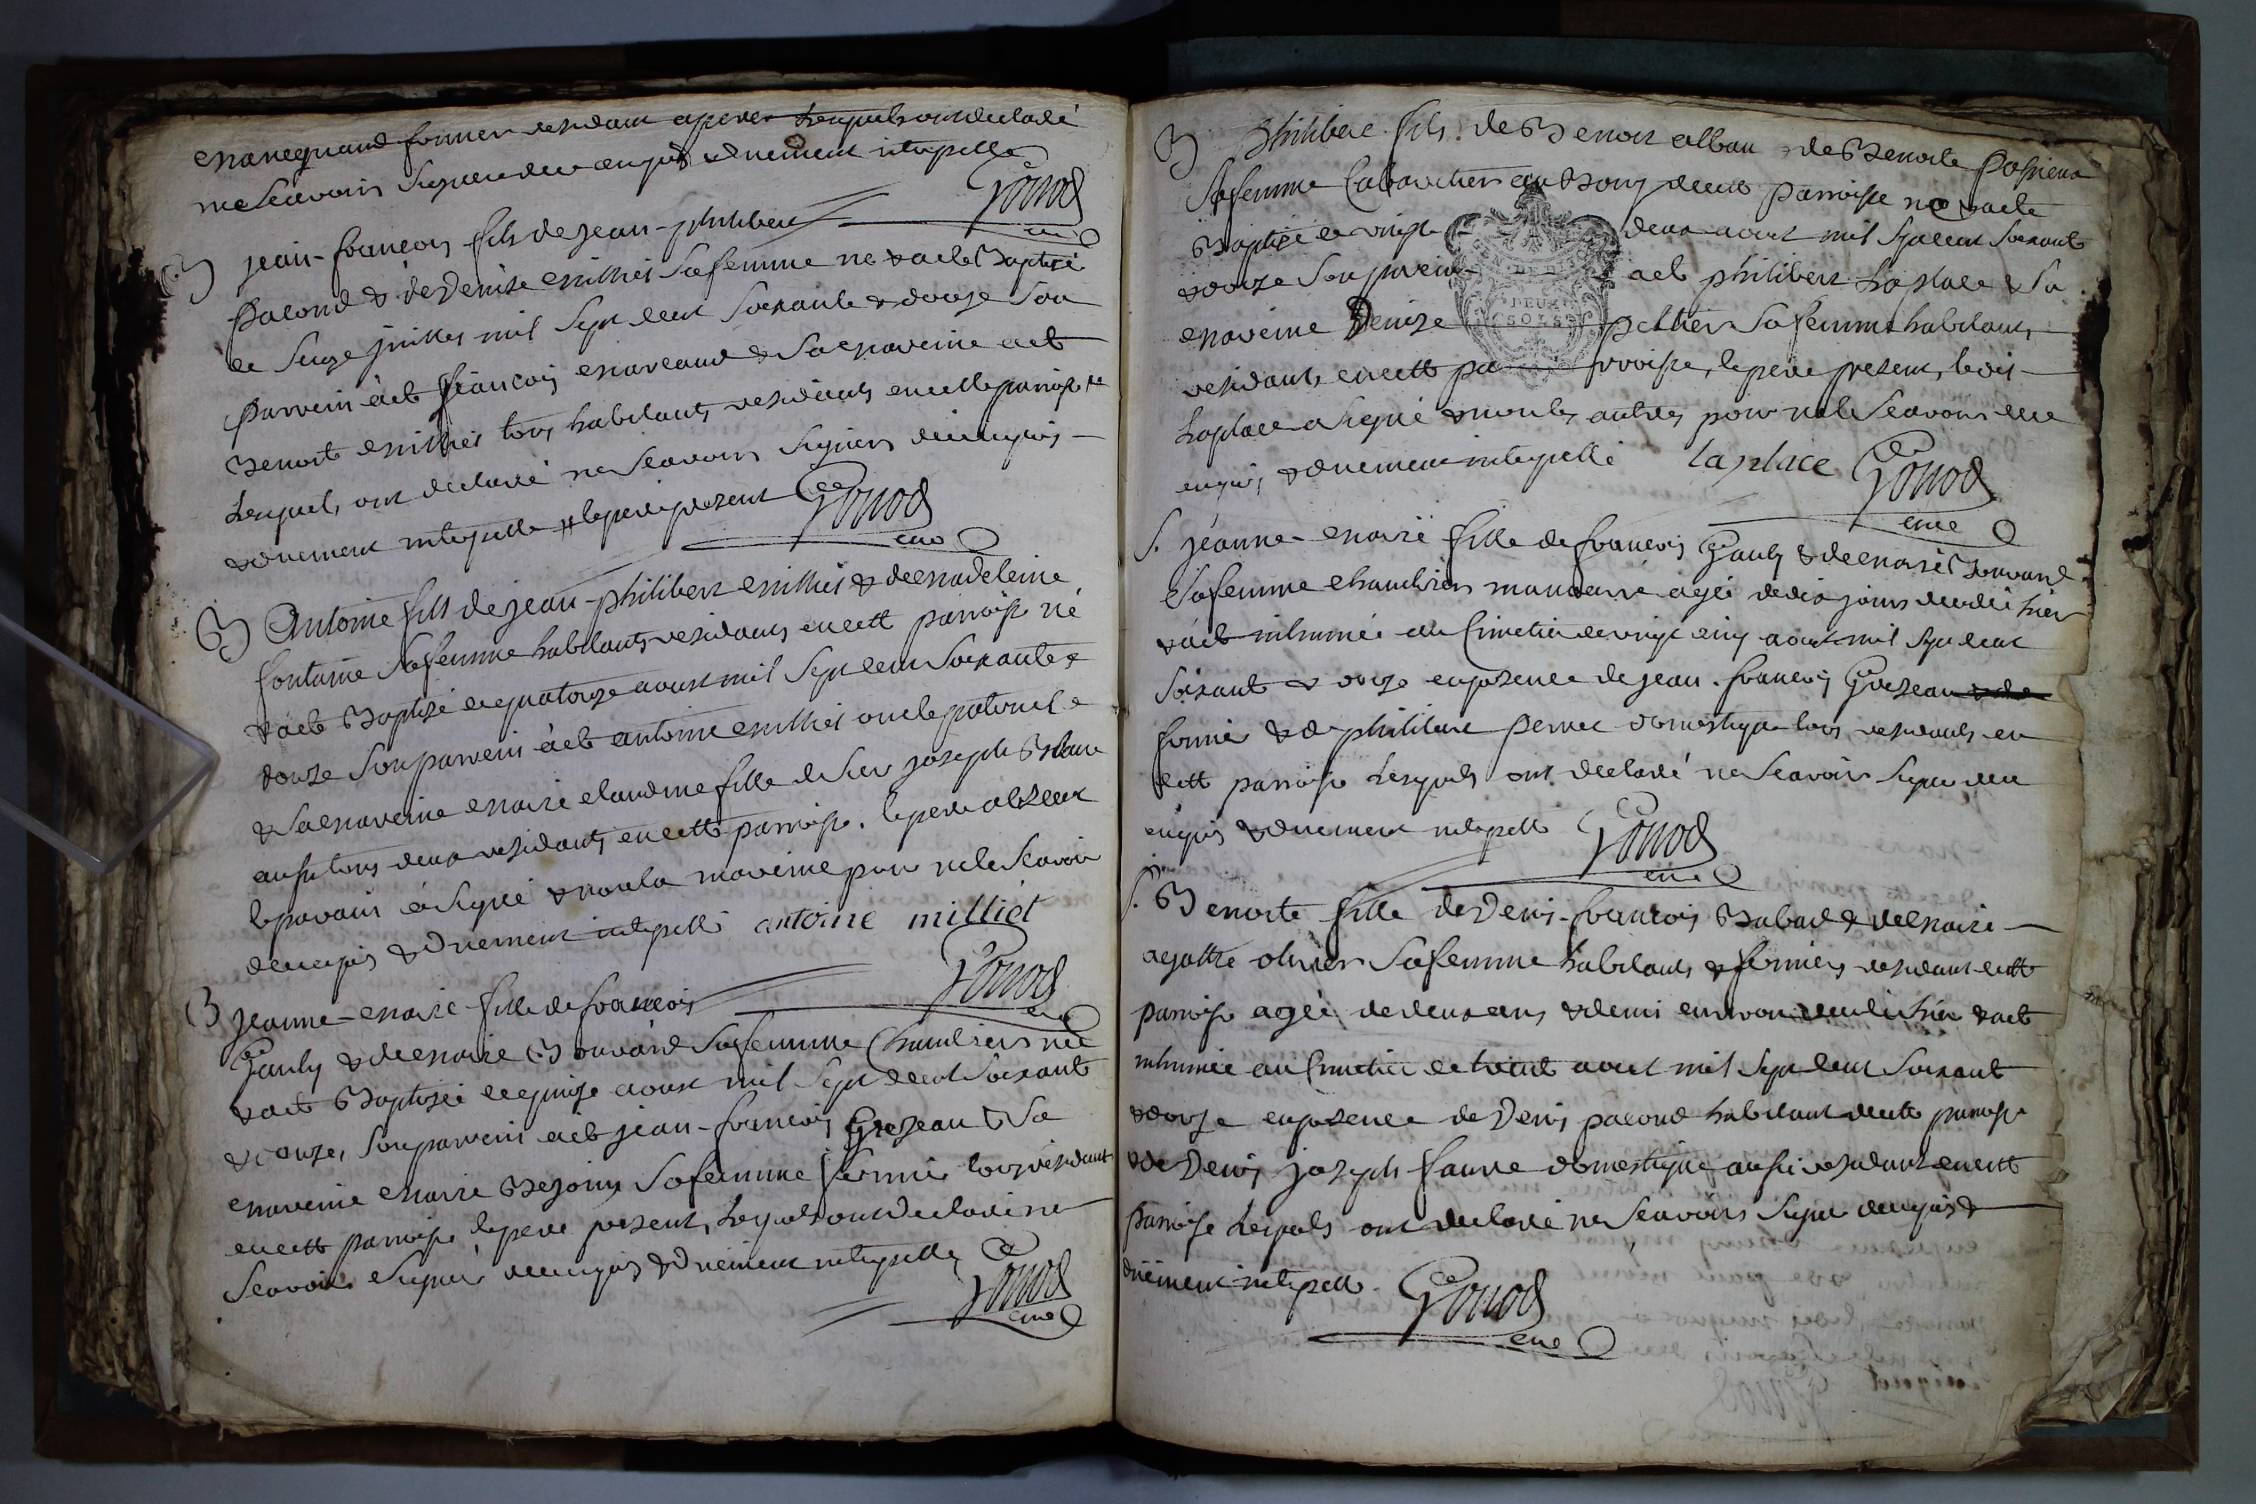 fermier residant lesquels ont declaré
ne scavoir signer de ce enquis & duement interpellé
Gonod
curé
B jean-françois fils de jean-philibert
pacoud & de Denise millict sa femme né & acté Baptisé
le seize juillet mil sept cent soixante & douze son
parrein à eté françois mareaud & sa mareine eté
Benoite millict tous habitants residants en cette parroisse
lesquels ont declaré ne scavoir signer de ce enquis
& duement interpellé # le pere present Gonod
curé
B Antoine fils de jean-philibert millict & de madeleine
fontaine sa femme habitants residants en cette parroisse né
& acté Baptisé le quatorze aoust mil sept cent soixante &
douze son parrein à eté antoine millict oncle paternel
& sa mareine marie claudine fille de sieur joseph
aussi tous deux residants en cette parroisse. le pere absent
le parain a signé & non la mareine pour ne le scavoir
de ce enquis & duement interpellé antoine milliet
Gonod
curé
B jeanne-marie fille de françois
Gauly & de marie Bouvard sa femme née
& acté Baptisée le quinze aoust mil sept cent soixante
& douze, son parrein à eté jean-françois Grezeau & sa
mareine marie Bejoin sa femme fermier tous residant
en cette parroisse le pere present, lesquels ont declaré ne
scavoir signer de ce enquis & duement interpellé
Gonod
curé
B philibert fils de Benoit alban & de Benoite
sa femme Cabaretier au Bourg de cette parroisse né & acté
Baptisé le vingt deux aout mil sept cent soixante
& douze son parein a eté philibert Laplace & sa
mareine Denize pelltier sa femme habitants
residants en cette parroisse, le pere present, ledit
Laplace a signé & non les autres pour ne le scavoir de ce
enquis & duement interpellé laplace Gonod
curé
S. jeanne-marie fille de françois Gauly & de marie Bouvard
sa femme agée de dix jours decedée hier
& acté inhumée au Cimetier le vingt cinq aout mil sept cent
soixante & douze en presence de jean-françois Grezeau
fermier & de philibert perret domestique tous residants en
cette parroisse lesquels ont declaré ne scavoir signer de ce
enquis & duement interpellé Gonod
curé
S. Benoite fille de Denis-françois Babad & de marie
agathe olivier sa femme habitants & fermiers residant cette
parroisse agée de deux ans & demi environ decedée hier & acté
inhumée au Cimetier le trente aout mil sept cent soixante
& douze en presence de Denis pacoud habitant de cette parroisse
& de Denis joseph faure domestique aussi residant en cette
parroisse lesquels ont declaré ne scavoir signer de ce enquis &
duement interpellé. Gonod
curé
DEUX
SOLS